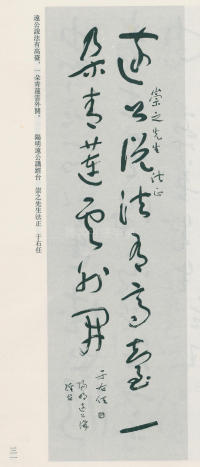 遠公說法有高臺，一朵青蓮雲外開。　陽明遠公講經台　崇之先生法正　于右任
崇之先生法正
遠公說法有高臺一
朵青蓮雲外開
于右任
陽明遠公講
經台